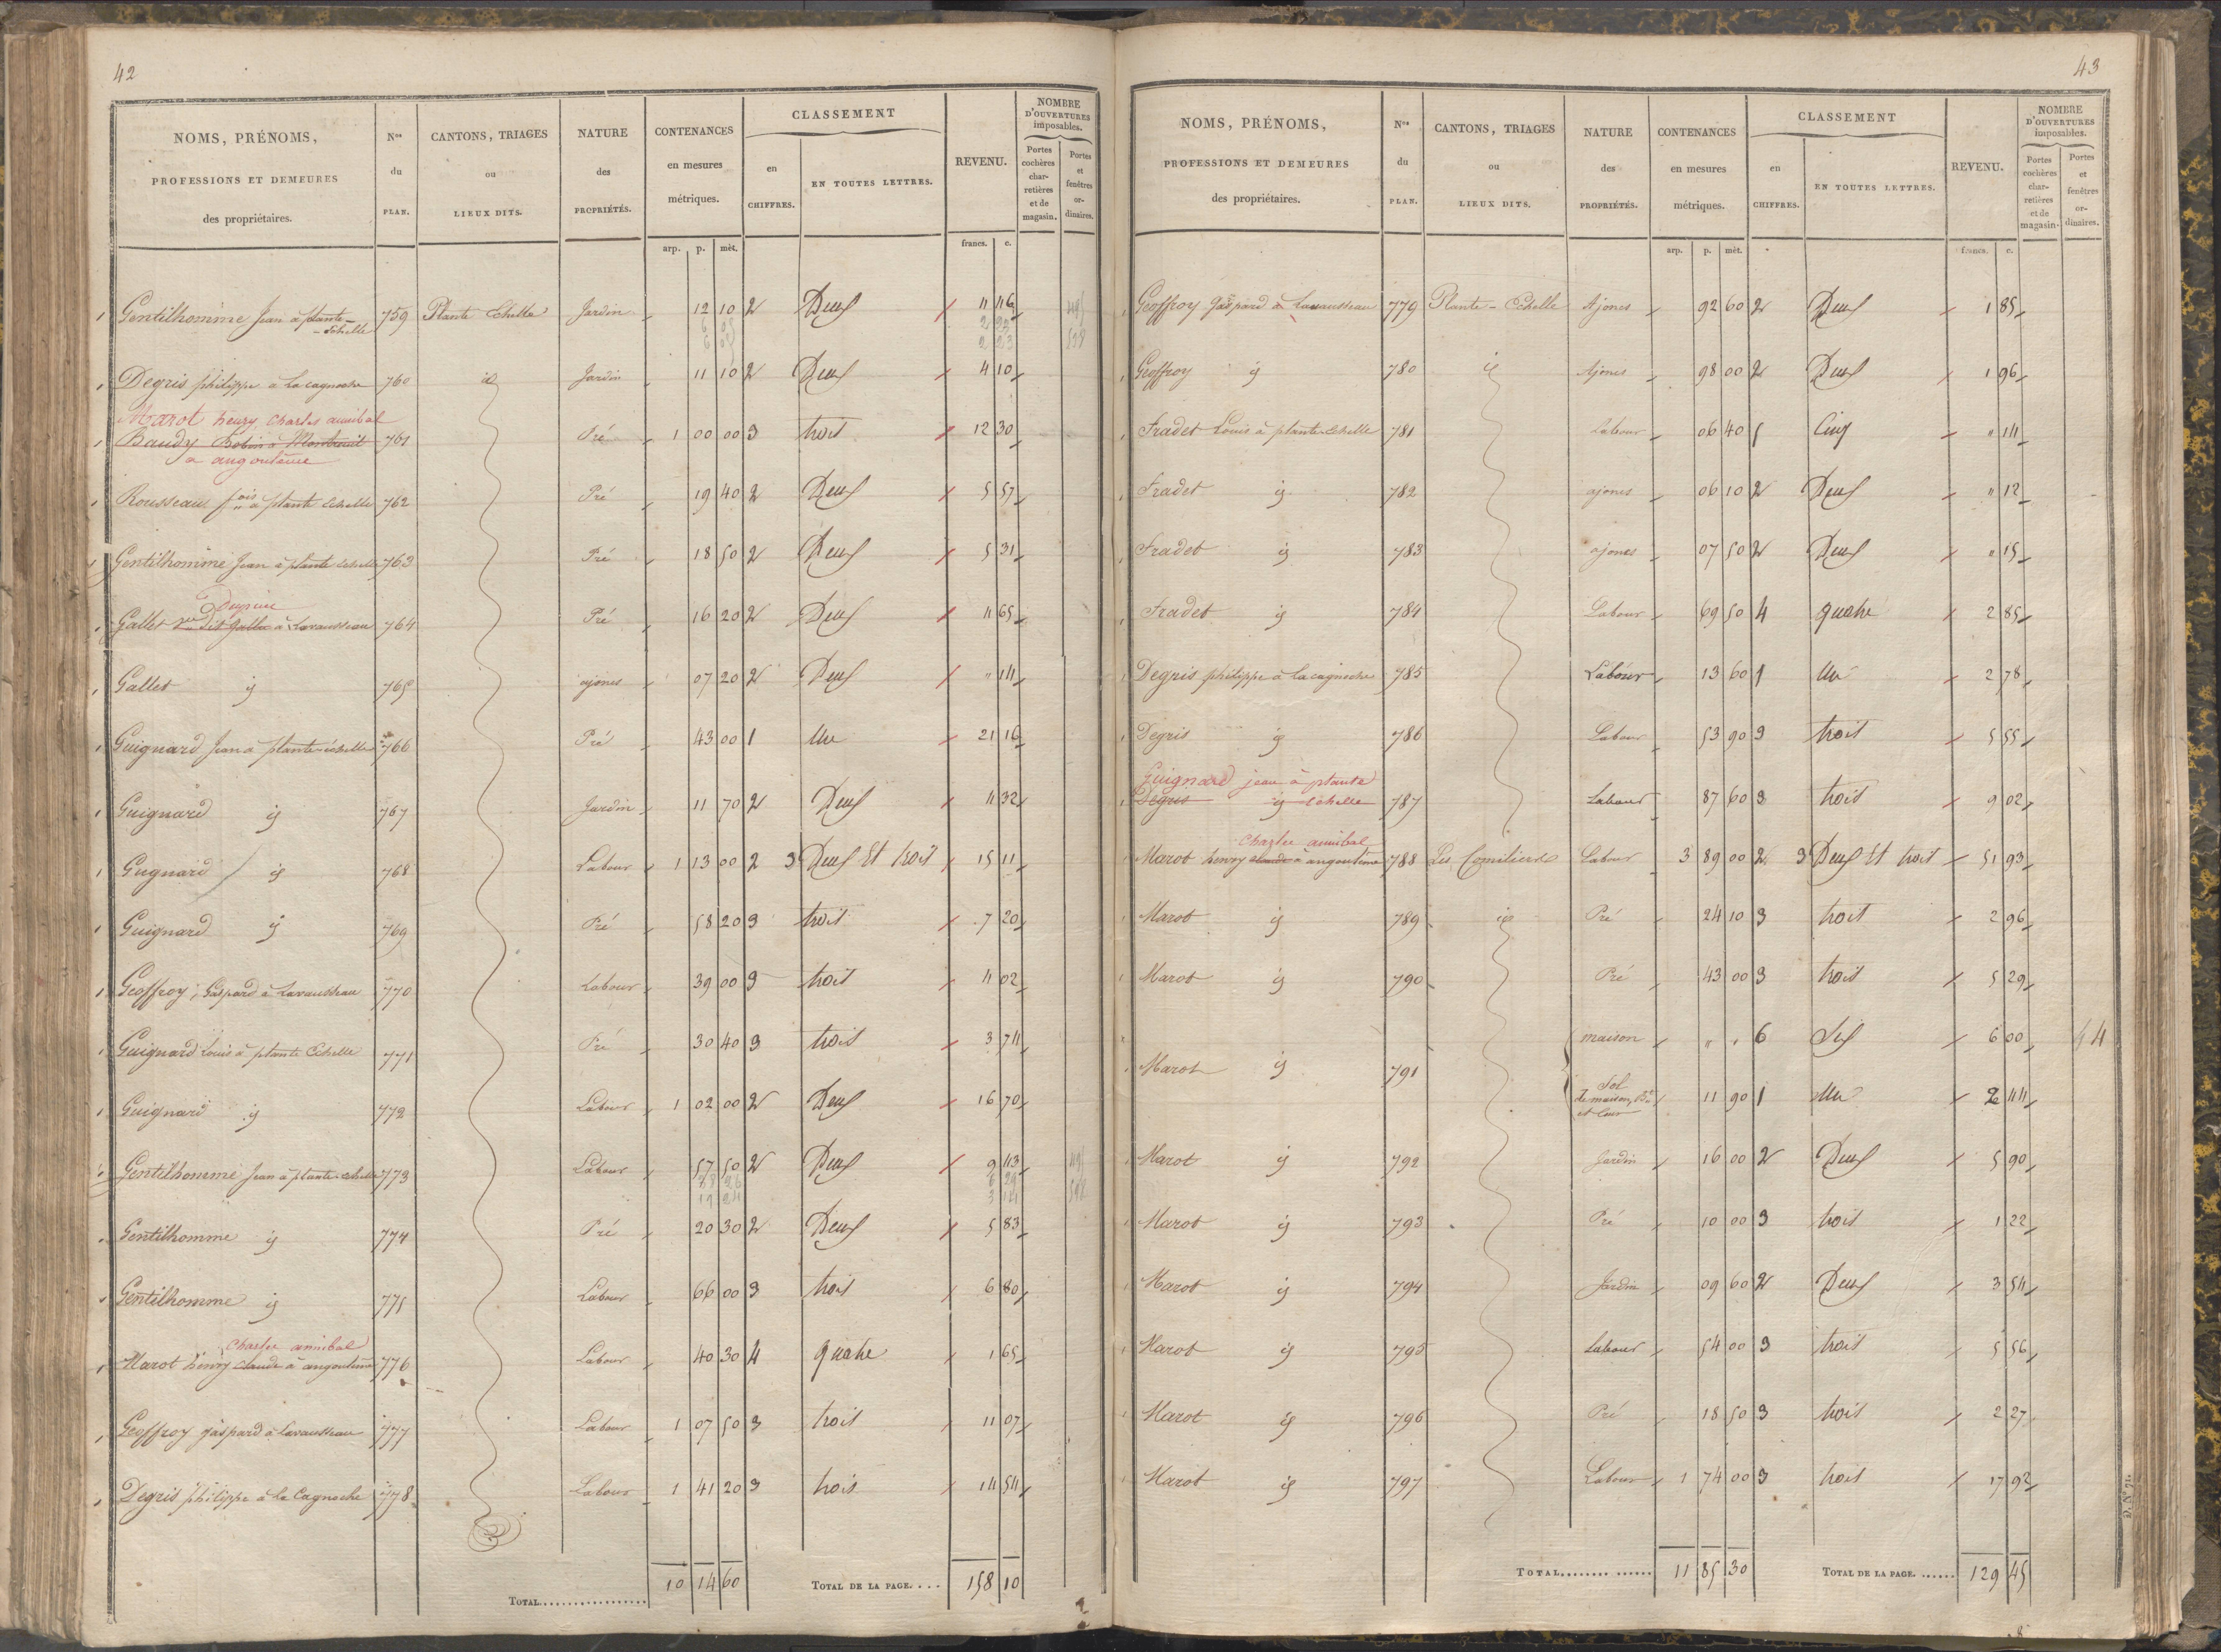 42
NOMS, PRÉNOMS, PROFESSIONS ET DEMEURES des propriétaires. | Nos du PLAN. | CANTONS, TRIAGES ou LIEUX DITS. | NATURE des PROPRIÉTÉS. | CONTENANCES en mesures métriques. | CLASSEMENT en CHIFFRES. | EN TOUTES LETTRES. | REVENU. | NOMBRE D'OUVERTURES imposables. Portes cochères charretières et de magasin. | Portes et fenêtres ordinaires.
arp. p. mèt. francs. c.
Gentilhomme Jean à plante-Echelle 759 Plante Echelle Jardin 12 10 2 Deux 4 46
Degris philippe à la cagnoche 760 id Jardin 11 10 2 Deux 4 10
Marot henry, Charles annibal
Baudy Robin à Montreuil 761 Pré 1 00 00 3 trois 12 30
a angoulême
Rousseau fois à plante Echelle 762 Pré 19 40 2 Deux 5 57
Gentilhomme Jean à plante Echelle 763 Pré 18 50 2 Deux 5 31
Gallet à Lavausseau 764 Pré 16 20 2 Deux 4 65
Gallet id 765 ajoncs 07 20 2 Deux " 14
Guignard Jean à plante-échelle 766 Pré 43 00 1 Un 21 16
Guignard id 767 Jardin 11 70 2 Deux 4 32
Guignard id 768 Labour 1 13 00 2 3 Deux Et trois 15 11
Guignard id 769 Pré 58 20 3 trois 7 20
Geoffroy, Gaspard à Lavausseau 770 Labour 39 00 3 trois 4 02
Guignard Louis à plante Echelle 771 Pré 30 40 3 trois 3 74
Guignard id 772 Labour 1 02 00 2 Deux 16 70
Gentilhomme Jean à plante-echelle 773 Labour 57 50 2 Deux 9 43
Gentilhomme id 774 Pré 20 30 2 Deux 5 83
Gentilhomme id 775 Labour 66 00 3 trois 6 80
Charles annibal
Marot henry claude à angoulême 776 Labour 40 30 4 quatre 1 65
Geoffroy gaspard à Lavausseau 777 Labour 1 07 50 3 trois 11 07
Degris philippe à la Cagnoche 778 Labour 1 41 20 3 trois 14 54
TOTAL................. 10 14 60 TOTAL DE LA PAGE.... 158 10
43
NOMS, PRÉNOMS, PROFESSIONS ET DEMEURES des propriétaires. | Nos du PLAN. | CANTONS, TRIAGES ou LIEUX DITS. | NATURE des PROPRIÉTÉS. | CONTENANCES en mesures métriques. | CLASSEMENT en CHIFFRES. | EN TOUTES LETTRES. | REVENU. | NOMBRE D'OUVERTURES imposables. Portes cochères charretières et de magasin. | Portes et fenêtres ordinaires.
arp. p. mèt. francs. c.
Geoffroy Gaspard à Lavausseau 779 Plante-Echelle Ajoncs 92 60 2 Deux 1 85
Geoffroy id 780 id Ajoncs 98 00 2 Deux 1 96
Fradet Louis à plante-Echelle 781 Labour 06 40 5 Cinq " 14
Fradet id 782 ajoncs 06 10 2 Deux " 12
Fradet id 783 ajoncs 07 50 2 Deux " 15
Fradet id 784 Labour 69 50 4 quatre 2 85
Degris philippe à la cagnoche 785 Labour 13 60 1 Un 2 78
Degris id 786 Labour 53 90 3 trois 5 55
Guignard jean à plante
Degris id échelle 787 Labour 87 60 3 trois 9 02
Charles annibal
Marot henry claude à angoulême 788 Labour 3 89 00 2 3 Deux Et trois 51 93
Marot id 789 id Pré 24 10 3 trois 2 96
Marot id 790 Pré 43 00 3 trois 5 29
Marot id 791 maison " " 6 Six 6 00 4
Sol de maison, Bt et Cour 11 90 1 Un 2 44
Marot id 792 Jardin 16 00 2 Deux 5 90
Marot id 793 Pré 10 00 3 trois 1 22
Marot id 794 Jardin 09 60 2 Deux 3 54
Marot id 795 Labour 54 00 3 trois 5 56
Marot id 796 Pré 18 50 3 trois 2 27
Marot id 797 Labour 1 74 00 3 trois 17 92
TOTAL.............. 11 85 30 TOTAL DE LA PAGE....... 129 45